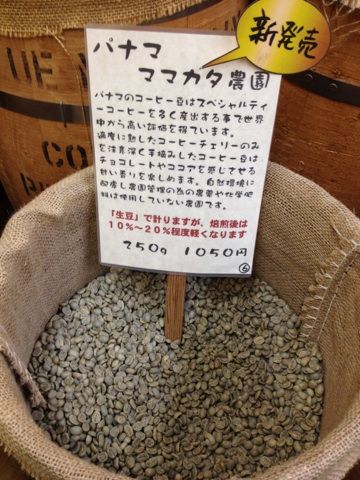 新発売
パナマ
ママカタ農園
パナマのコーヒー豆はスペシャルティ
ーコーヒーを多く産出する事で世界
中から高い評価を得ています。
適度に熟したコーヒーチェリーのみ
を注意深く手摘みしたコーヒー豆は
チョコレートやココアを感じさせる
甘い香りを楽しめます。自然環境に
配慮し農園管理の為の農薬や化学肥
料は使用していない農園です。
「生豆」で計りますが、焙煎後は
10%～20%程度軽くなります
250g 1050円
⑥